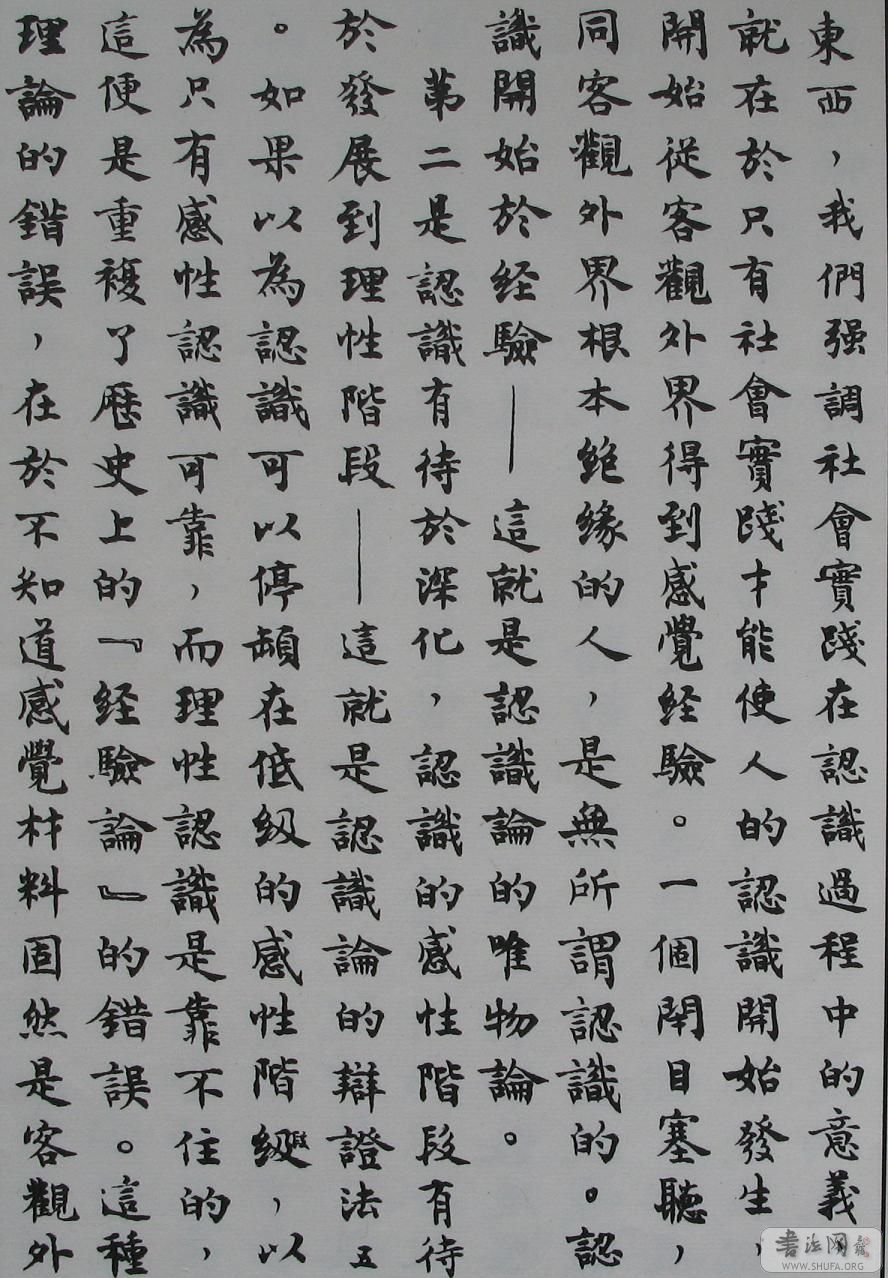 東西，我們强調社會實踐在認識過程中的意義，
就在於只有社會實踐才能使人的認識開始發生，
開始從客觀外界得到感覺经驗。一個閉目塞聽，
同客觀外界根本絶缘的人，是無所謂認識的。認
識開始於经驗——這就是認識論的唯物論。
第二是認識有待於深化，認識的感性階段有待
於發展到理性階段——這就是認識論的辯證法五
。如果以為認識可以停頓在低級的感性階級，以
為只有感性認識可靠，而理性認識是靠不住的，
這便是重複了歷史上的『经驗論』的錯誤。這種
理論的錯誤，在於不知道感覺材料固然是客觀外
書法网
WWW.SHUFA.ORG